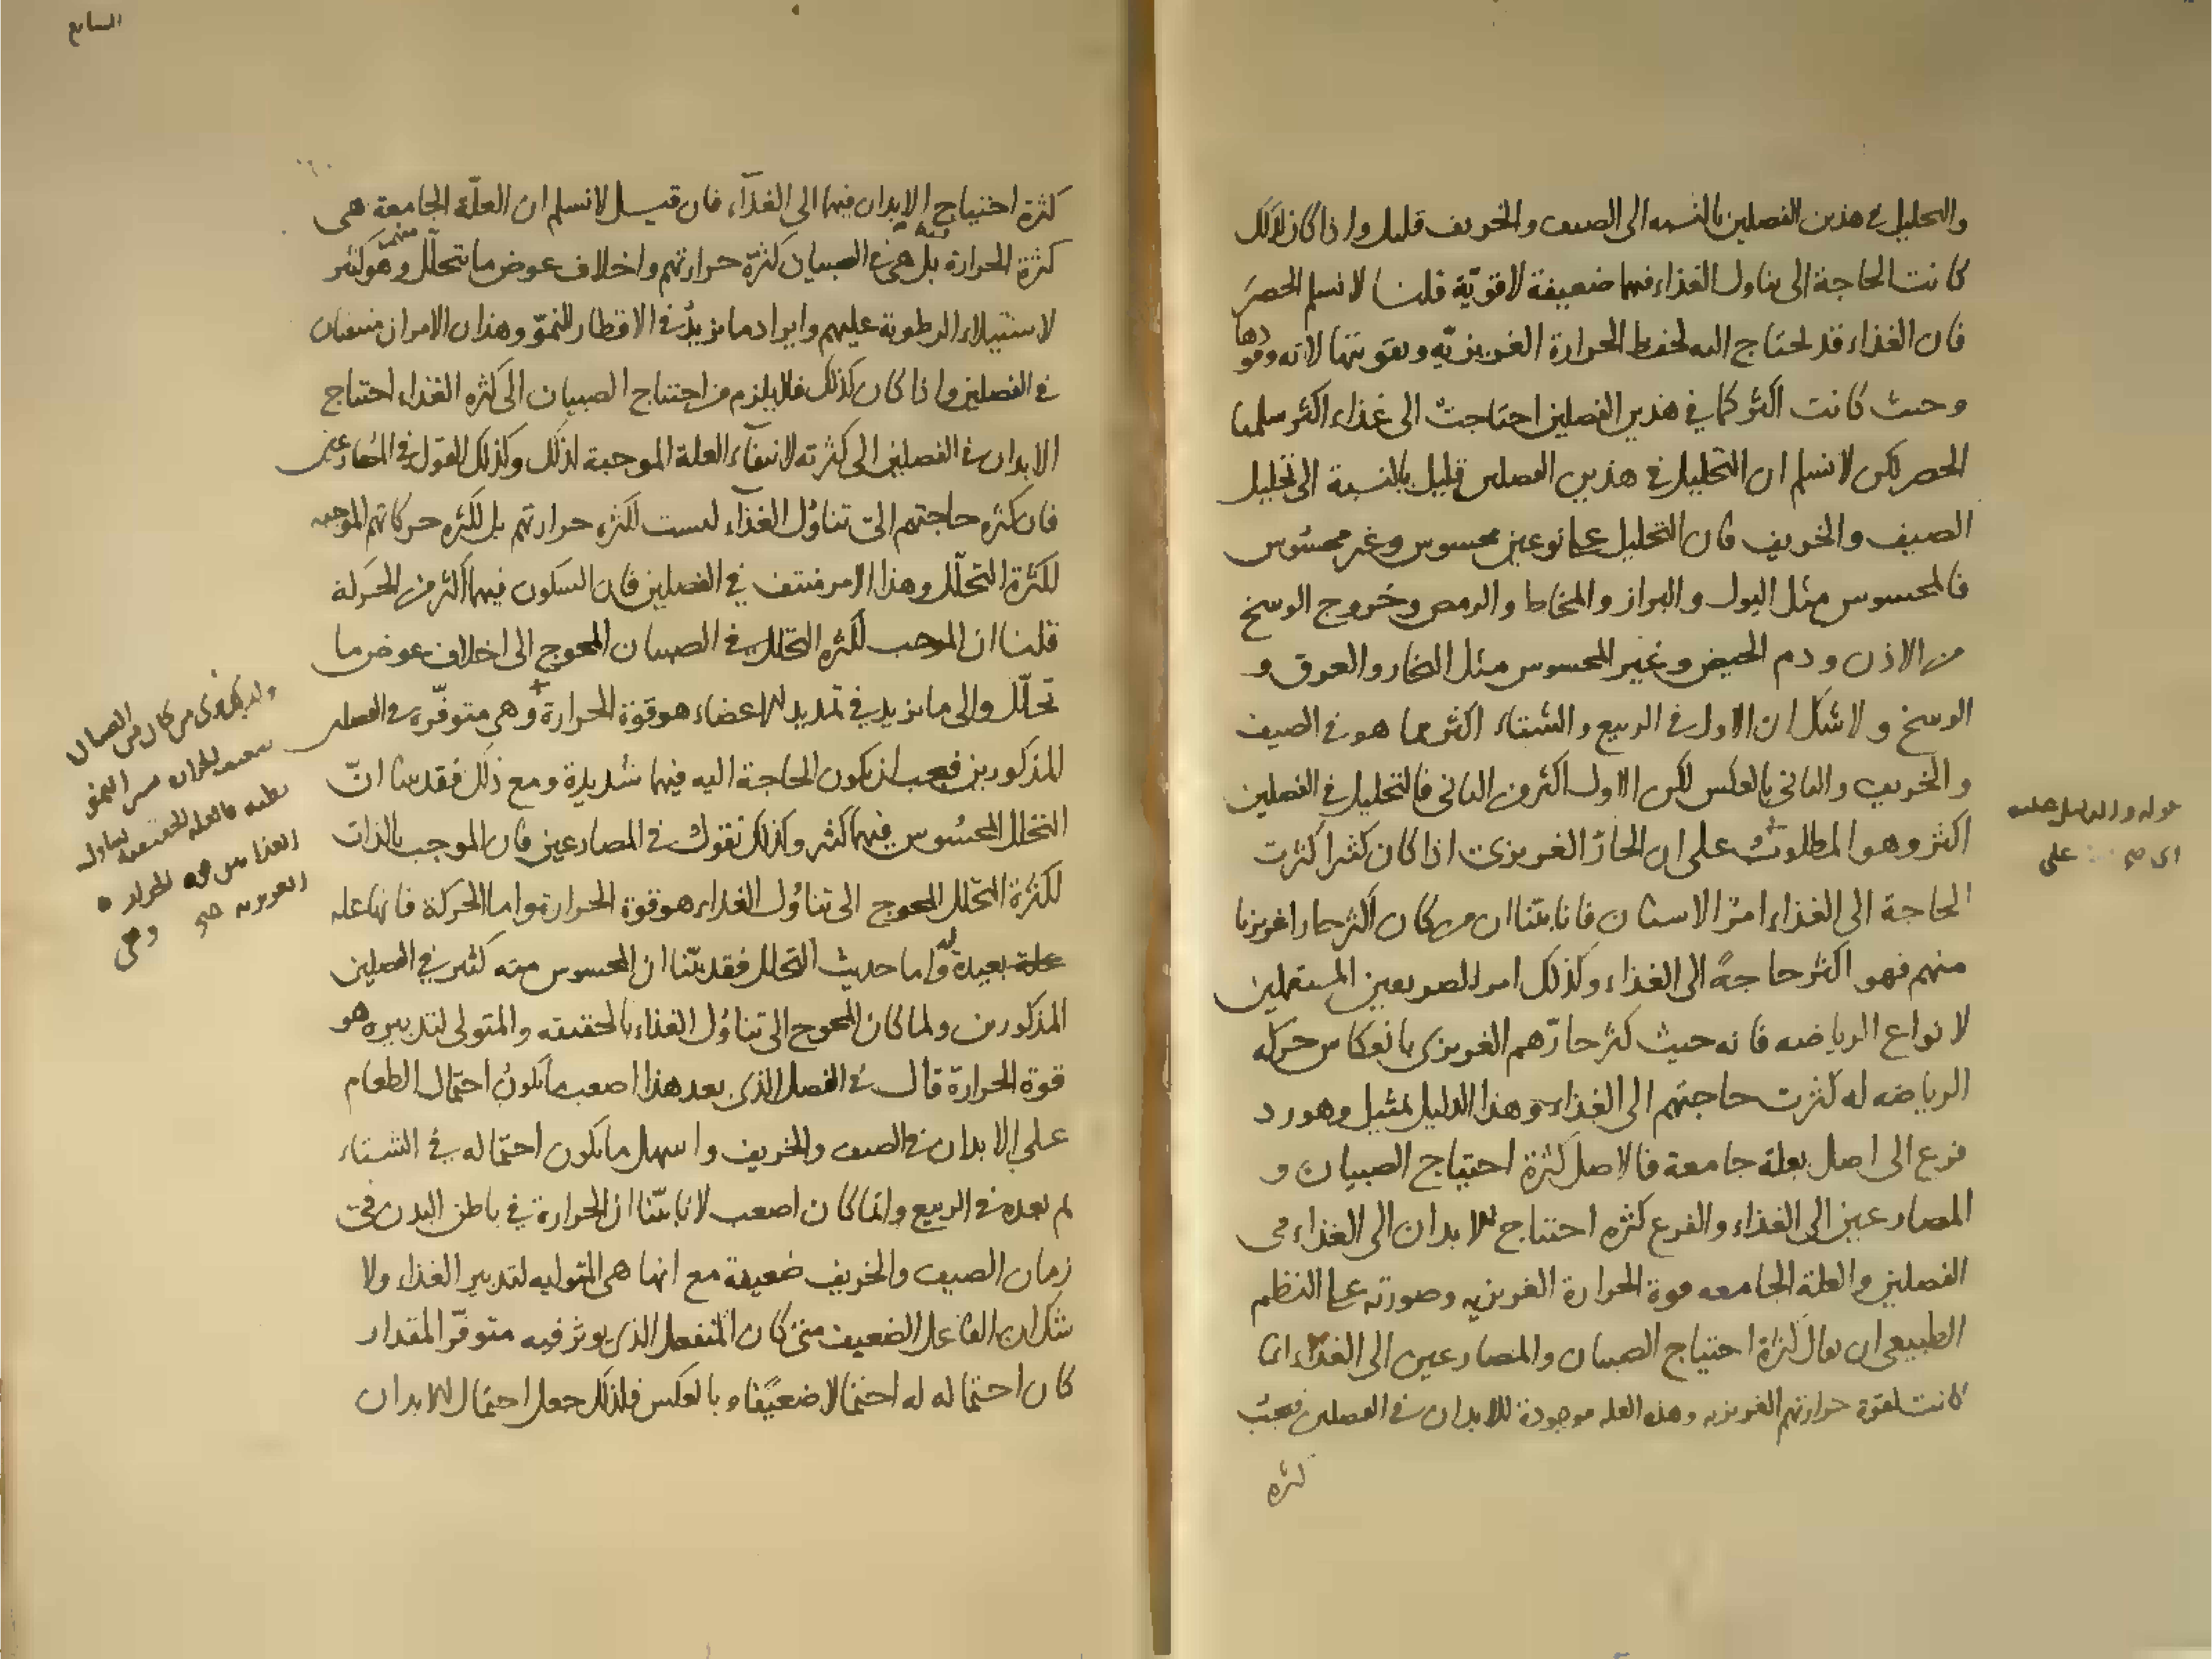 والتحليل في هذين الفصلين بالنسبه الى الصيف والخريف قليل واذا كان كذلك
كانت الحاجة الى تناول الغذاء فيهما ضعيفة لا قوية قلنا لا نسلم الحصر
فان الغذاء قد يحتاج اليه لحفظ الحرارة الغريزيّة وتقويتها لانه وقودها
وحيث كانت اكثر كما في هذين الفصلين احتاجت الى غذاء اكثر سلمنا
الحصر لكن لا نسلم ان التحليل في هذين الفصلين قليل بالنسبة الى تحليل
الصيف والخريف فان التحليل على نوعين محسوس وغير محسوس
فالمحسوس مثل البول والبراز والمخاط والرمص وخروج الوسخ
من الاذن ودم الحيض وغير المحسوس مثل البخار والعرق و
الوسخ ولا شك ان الاول في الربيع والشتاء اكثر مما هو في الصيف
والخريف والثاني بالعكس لكن الاول اكثر من الثاني فالتحليل في الفصلين
اكثر وهو المطلوب على ان الحارّ الغريزي اذا كان كثيرا كثرت
الحاجة الى الغذاء امر الاسنان فانا بيّنا ان من كان اكثر حارا غريزيا
منهم فهو اكثر حاجةً الى الغذاء وكذلك امر الصريعين المستعملين
لانواع الرياضه فانه حيث كثر حارّهم الغريزي بانعكاس حركه
الرياضه له كثرت حاجتهم الى الغذاء وهذا الدليل تمثيل وهو رد
فرع الى اصل بعلة جامعة فالاصل كثرة احتياج الصبيان و
المصارعين الى الغذاء والفرع كثره احتياج الابدان الى الغذاء في
الفصلين والعلة الجامعه قوة الحرارة الغريزيه وصورته على النظم
الطبيعي ان يقال كثرة احتياج الصبيان والمصارعين الى الغذاء انما
كانت لقوة حرارتهم الغريزيه وهذه العله موجودة للابدان في الفصلين فيجب
كثره
قوله والدليل عليه
على
السابع
كثرة احتياج الابدان فيهما الى الغذآء فان قيل لا نسلم ان العلّة الجامعة هى
كثرة الحرارة بل هى في الصبيان كثرة حرارتهم واخلاف عوض ما تحلّل وهو كثير
لاستيلاء الرطوبة عليهم وايراد ما يزيدُ في الاقطار للنموّ وهذان الامران منتفيان
في الفصلين واذا كان كذلك فلا يلزم من احتياج الصبيان الى كثره الغذاء احتياج
الابدان في الفصلين الى كثرته لانتفاء العلة الموجبة لذلك وكذلك القول في المصارعين
فان كثره حاجتهم الى تناول الغذآء ليست لكثره حرارتهم بل لكثره حركاتهم الموجبه
لكثرة التحلّل وهذا الامر منتف في الفصلين فان السكون فيهما اكثر من الحركة
قلنا ان الموجب لكثره التحلل في الصبيان المحوج الى اخلاف عوض ما
تحلّل والى ما يزيد في تمديد الاعضاء هو قوة الحرارة وهى متوفّره في الفصلين
المذكورين فيجب ان يكون الحاجة اليه فيهما شديدة ومع ذلك فقد بينا انّ
التحلل المحسوس فيهما كثير وكذلك نقول في المصارعين فان الموجب بالذات
لكثرة التحلل المحوج الى تناول الغذاء هو قوة الحرارة واما الحركة فانها علة
علة بعيدة له واما حديث التحلل فقد بيّنا ان المحسوس منه كثير في الفصلين
المذكورين ولما كان المحوج الى تناول الغذاء بالحقيقه والمتولى لتدبيره هو
قوة الحرارة قال في الفصل الذي بعد هذا اصعب ما يكون احتمال الطعام
على الابدان في الصيف والخريف واسهل ما يكون احتماله في الشتاء
ثم بعده في الربيع وانما كان اصعب لانا بيّنا ان الحرارة في باطن البدن في
زمان الصيف والخريف ضعيفة مع انها هى المتوليه لتدبير الغذاء ولا
شك ان الفاعل الضعيف متى كان المنفعل الذى يوثر فيه متوفّر المقدار
كان احتماله له احتمالا ضعيفا وبالعكس فلذلك جعل احتمال الابدان
من كان من الصبيان
فالعلة الحقيقية
الغذا
الغريزيه
وهي